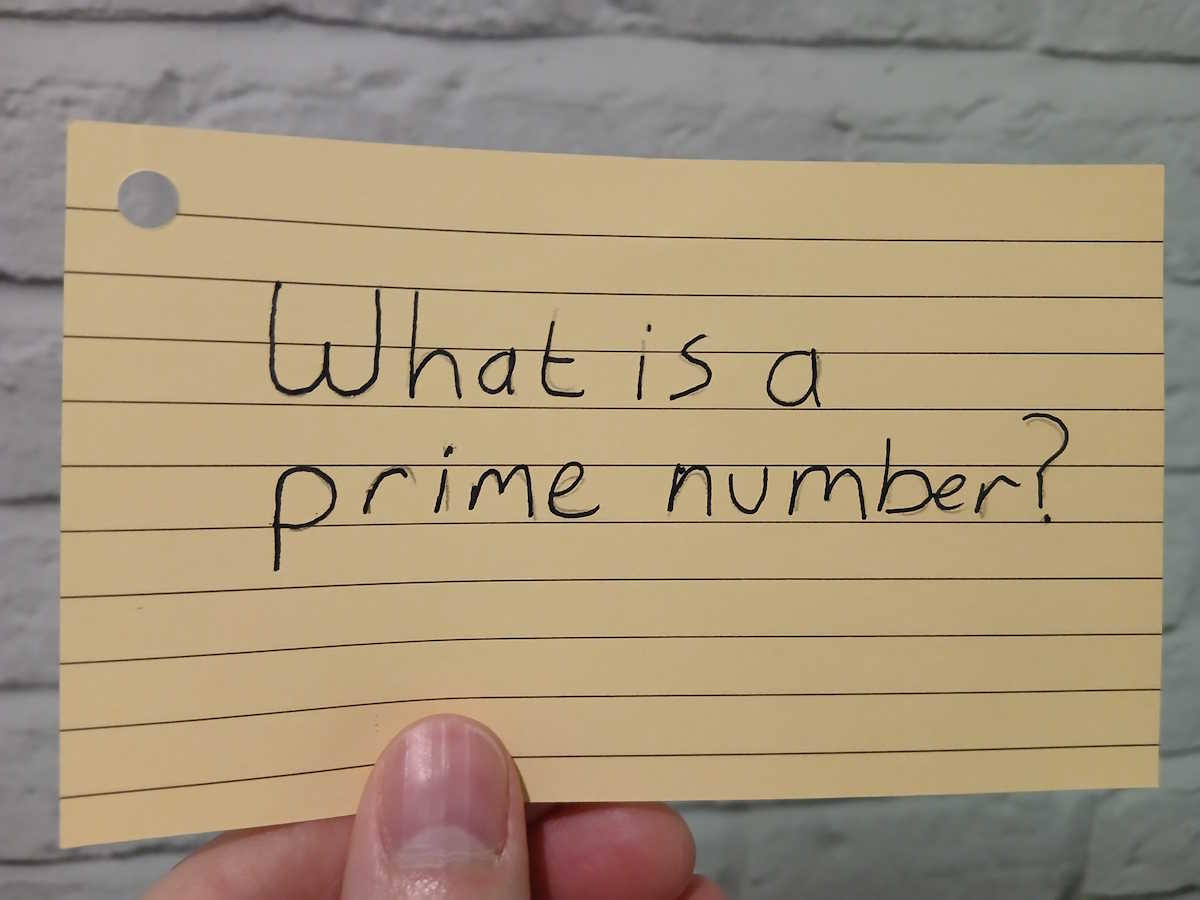 What is a
prime number?